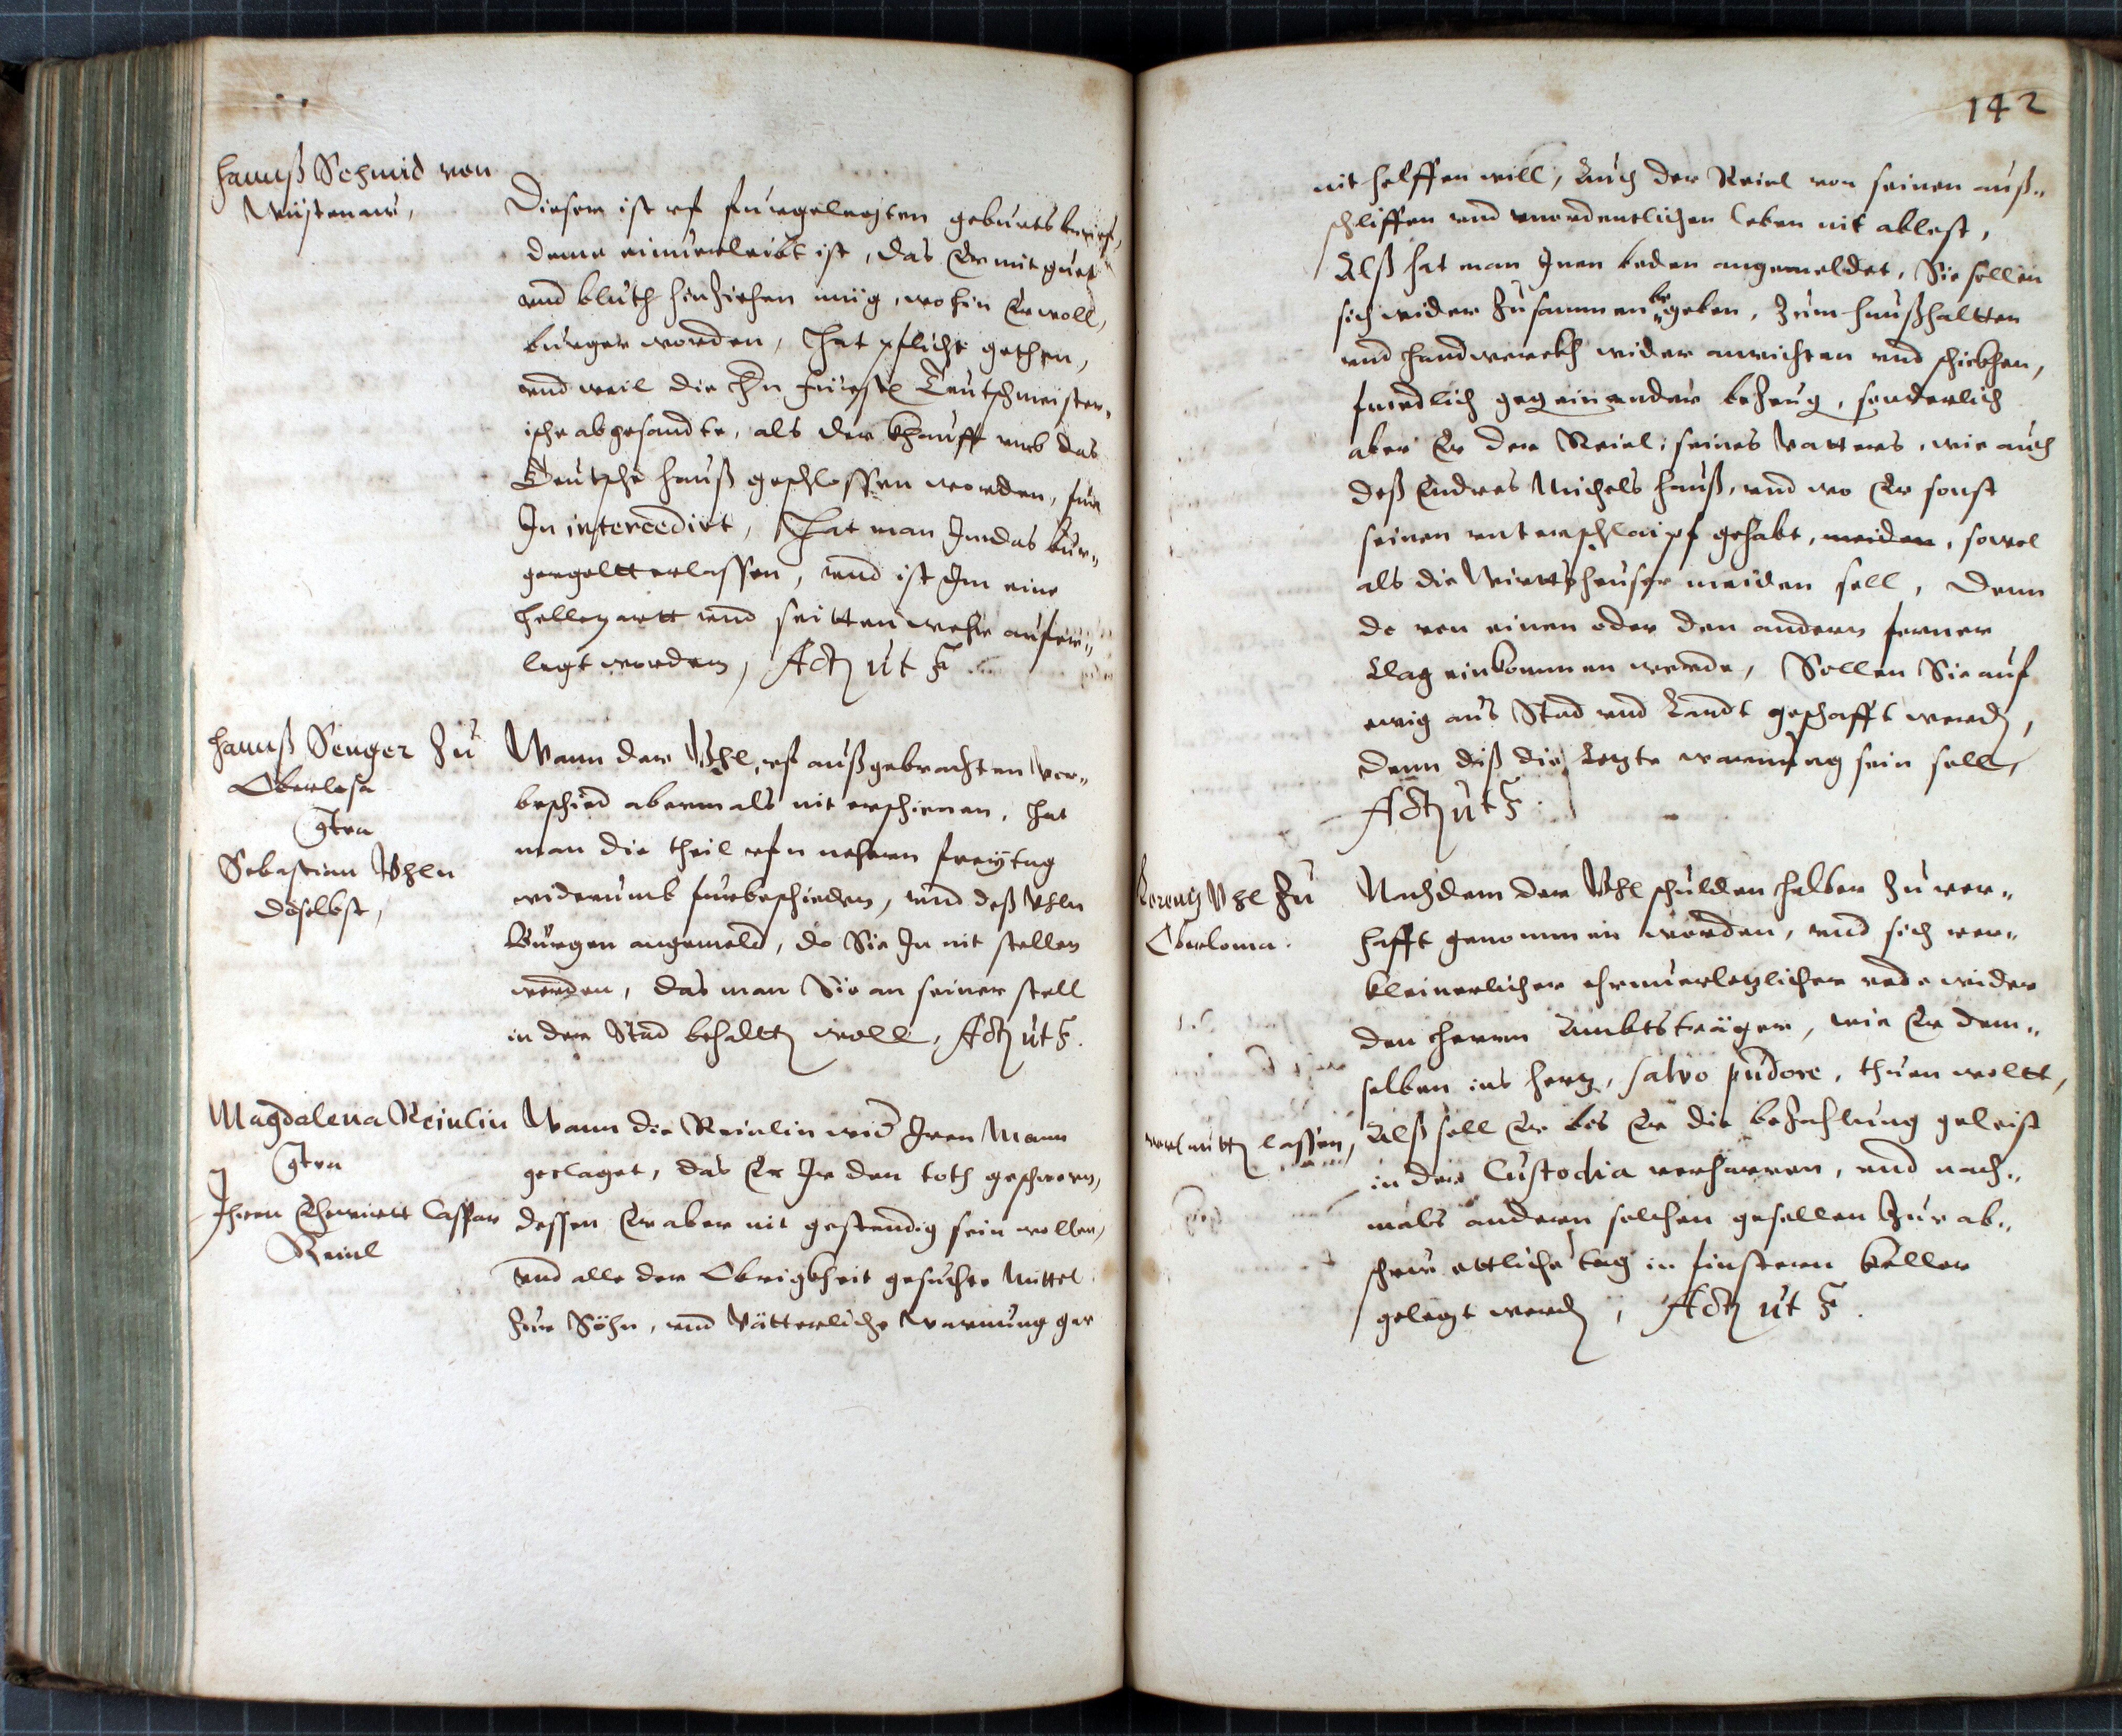 Hannß Schmid von
Wüstenaw,
Diesem ist vf furgelegten geburts brieff,
deme einuerleibt ist, das Er mit guet
vnd bluth hinziehen mög, wohin Er woll,
burger worden, Hat pflicht gethon,
vnd weil die Hn fürstl Teutschmeister„
ische abgesandte, als der Khauff vmb das
Teutsche Hauß geschlossen worden, fur
In intercedirt, Hat man Im das bur„
gergeltt erlassen, vnd ist Im eine
Hellepartt vnd seitten wehr aufer„
legt worden, Actum ut s.
Hannß Senger Zu
Oberlosa
gten
Sebastian Vhln
doselbst,
Wann der Vhl, vf außgebrachten Vor„
beschied abermals nit erschienen, Hat
man die theil vfn nehern freÿtag
widerumb furbeschieden, vnd deß Vhln
Burgen angemeld, do Sie In nit stellen
werden, das man Sie an seiner stell
in der Stad behalten woll, Actum ut s.
Magdalena Reinlin
gten
Ihren Ehewirtt Caspar
Reinl
Wann die Reinlin wid Iren Mann
geclaget, das Er Ir den toth geschworn,
dessen Er aber nit gestendig sein wollen,
vnd alle der Obrigkheit gesuchte Mittel
Zur Söhn, vnd Vätterliche Warnung gar
142
nit helffen will, Auch der Reinl von seinen auß„
schliffen vnd vnordentlichen leben nit ablest,
Alß hat man Inen beden angemeldet, Sie sollen
sich wider Zusammen begeben, Zum haußhaltten
vnd Handwerckh wider anrichten vnd schickhen,
friedlich gegeneinander bezeug, sonderlich
aber Er der Reinl, seines Vatters, wie auch
deß Endres Michels Hauß, vnd wo Er sonst
seinen vnterschlaipf gehabt, meiden, sowol
als die Wirttsheuser meiden soll, Denn
do von einen oder den andern ferner
Clag einkommen werde, Sollen Sie auf
ewig aus Stad vnd Landt geschafft werden,
denn diß die Letzte warnung sein soll,
Actum ut s.
Lorentz Vhl Zu
Oberloma.
Nachdem der Vhl schulden halber Zu ver„
hafft genommen worden, vnd sich ver„
kleinerlicher ehrnuerletzlicher rede wider
den Herrn Ambtsträger, wie Er dem„
selben ins hertz, salvo pudore, thuen woltt,
lassen,
Alß soll Er bis Er die bezahlung geleist
in der Custodia verharren, vnd nach„
mals andern solchen gesellen Zur ab„
schew ettliche tag in finstern Keller
gelegt werden, Actum ut s.